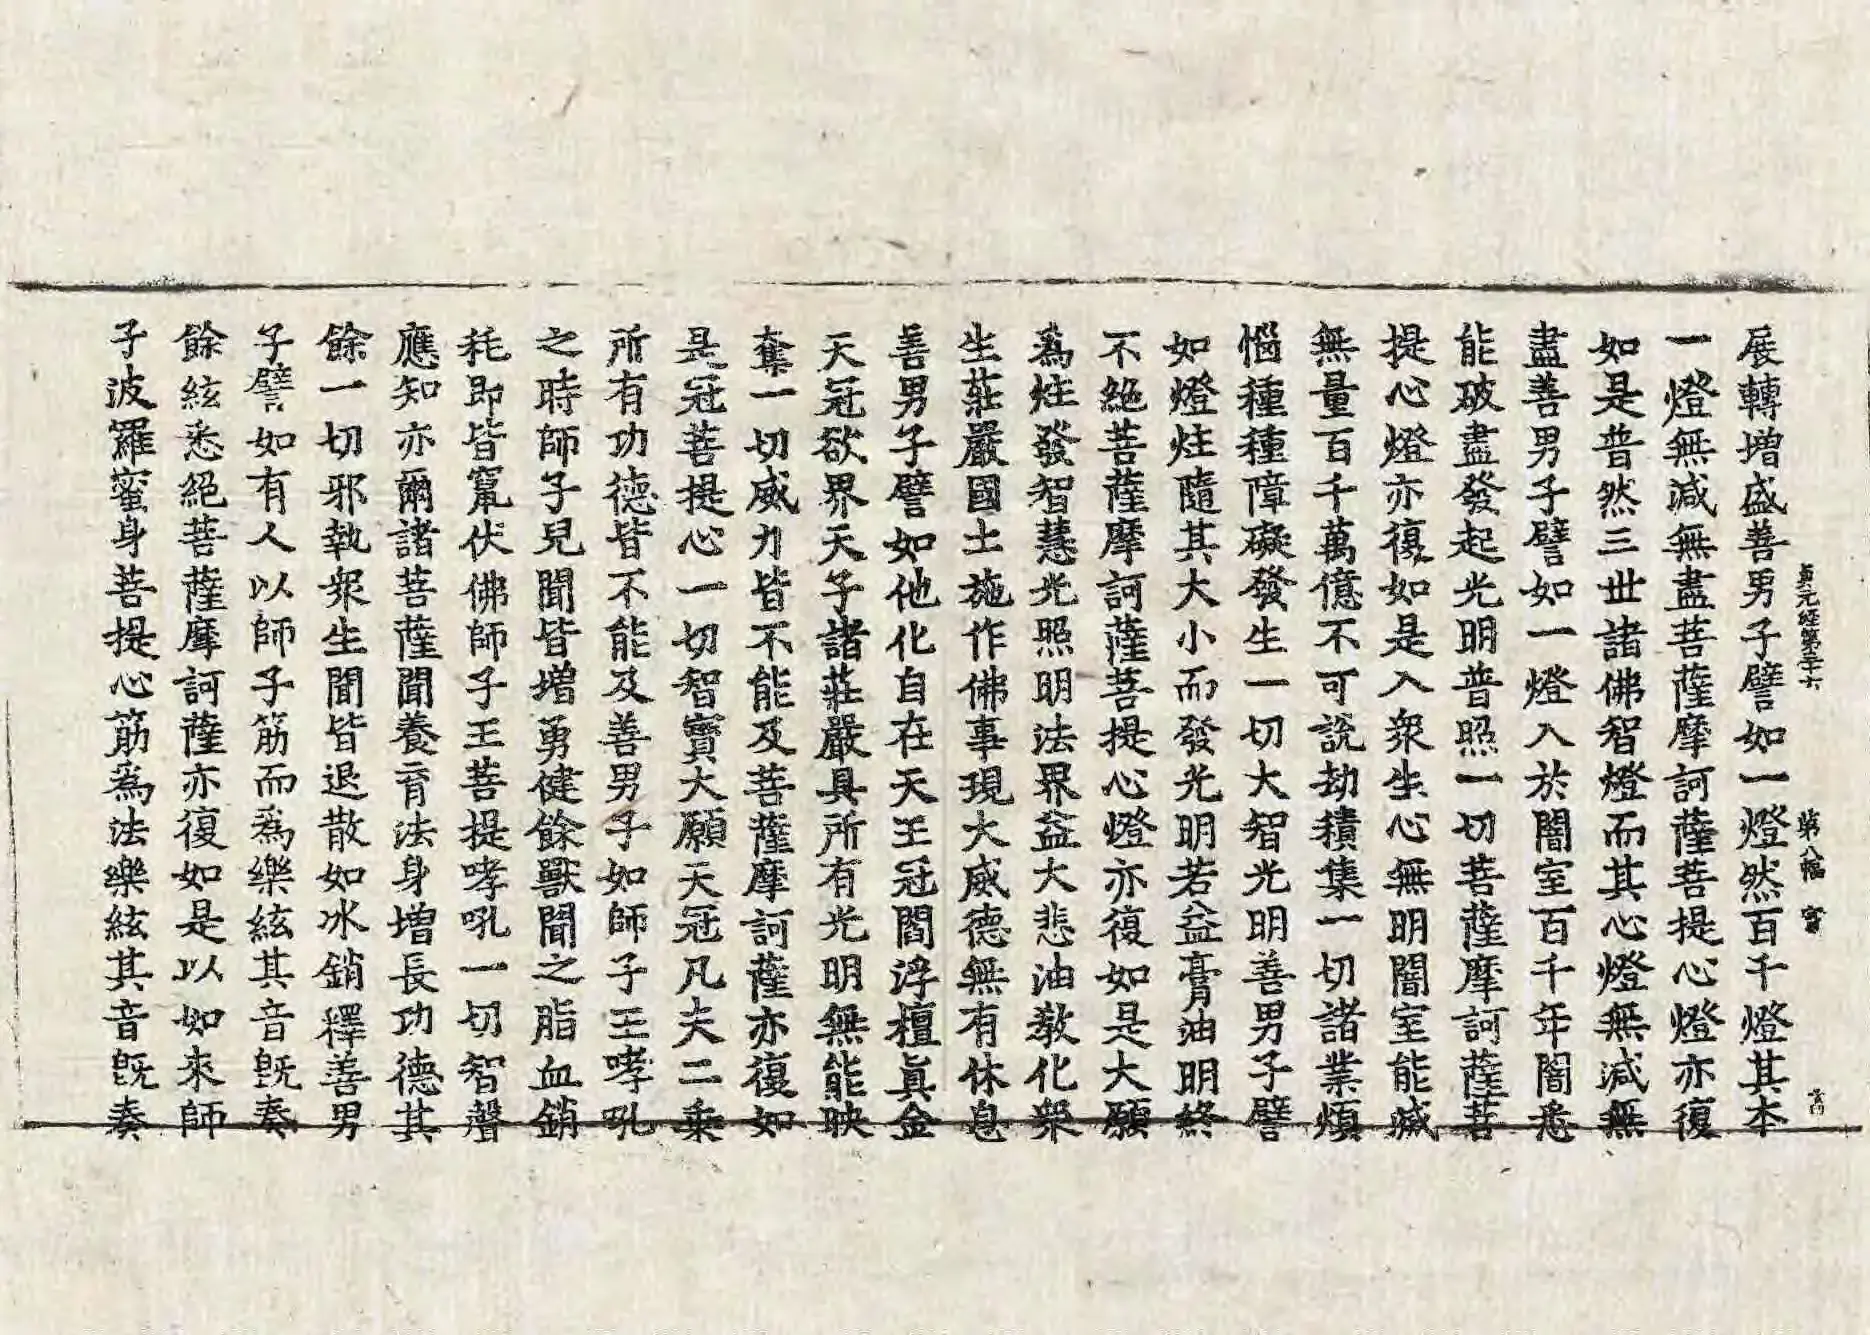 展轉增盛善男子譬如一燈然百千燈其本
一燈無減無盡菩薩摩訶薩菩提心燈亦復
如是普然三世諸佛智燈而其心燈無減無
盡善男子譬如一燈入於闇室百千年闇悉
能破盡發起光明普照一切菩薩摩訶薩菩
提心燈亦復如是入衆生心無明闇室能滅
無量百千萬億不可說劫積集一切諸業煩
惱種種障礙發生一切大智光明善男子譬
如燈炷隨其大小而發光明若益膏油明終
不絶菩薩摩訶薩菩提心燈亦復如是大願
爲炷發智慧光照明法界益大悲油敎化衆
生莊嚴國土施作佛事現大威德無有休息
善男子譬如他化自在天王冠閻浮檀眞金
天冠欲界天子諸莊嚴具所有光明無能映
奪一切威力皆不能及菩薩摩訶薩亦復如
是冠菩提心一切智寶大願天冠凡夫二乗
所有功德皆不能及善男子如師子王哮吼
之時師子兒聞皆增勇健餘獸聞之脂血銷
耗即皆竄伏佛師子王菩提哮吼一切智聲
應知亦爾諸菩薩聞養育法身增長功德其
餘一切邪執衆生聞皆退散如冰銷釋善男
子譬如有人以師子筋而爲樂絃其音旣奏
餘絃悉絕菩薩摩訶薩亦復如是以如來師
子波羅蜜身菩提心筋爲法樂絃其音旣奏
貞元經第三十六 第八幅 寧